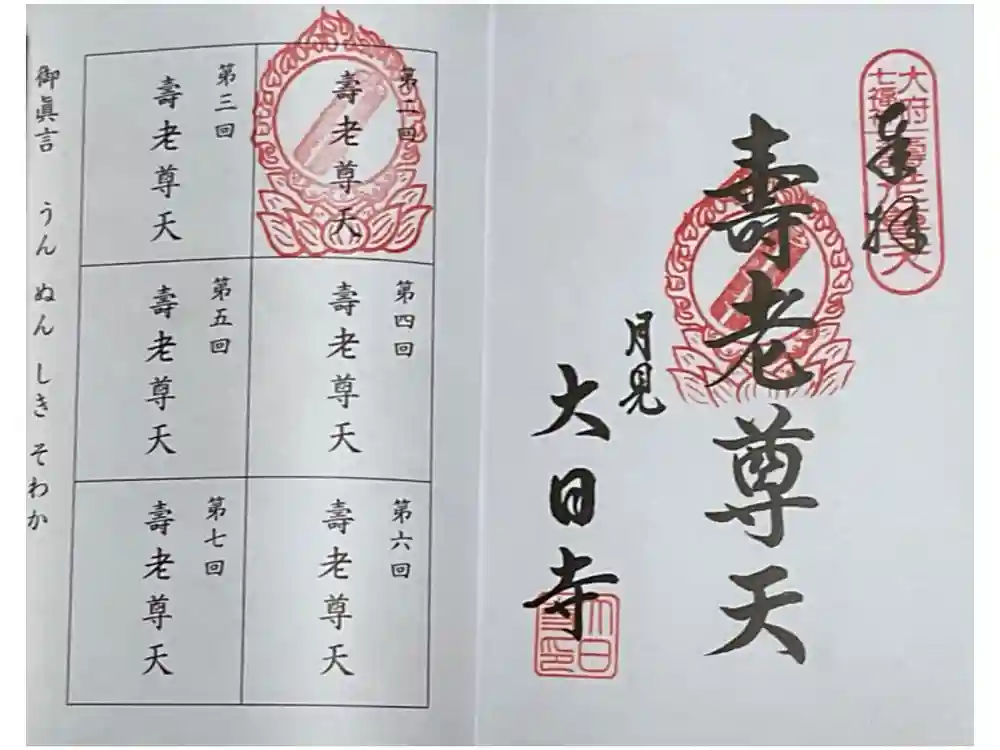 大府
七福神
奉拝
壽老尊天
月見
大日寺
大日
寺印
第二回
壽老尊天
第三回
壽老尊天
第四回
壽老尊天
第五回
壽老尊天
第六回
壽老尊天
第七回
壽老尊天
御眞言 うん ぬん しき そわか